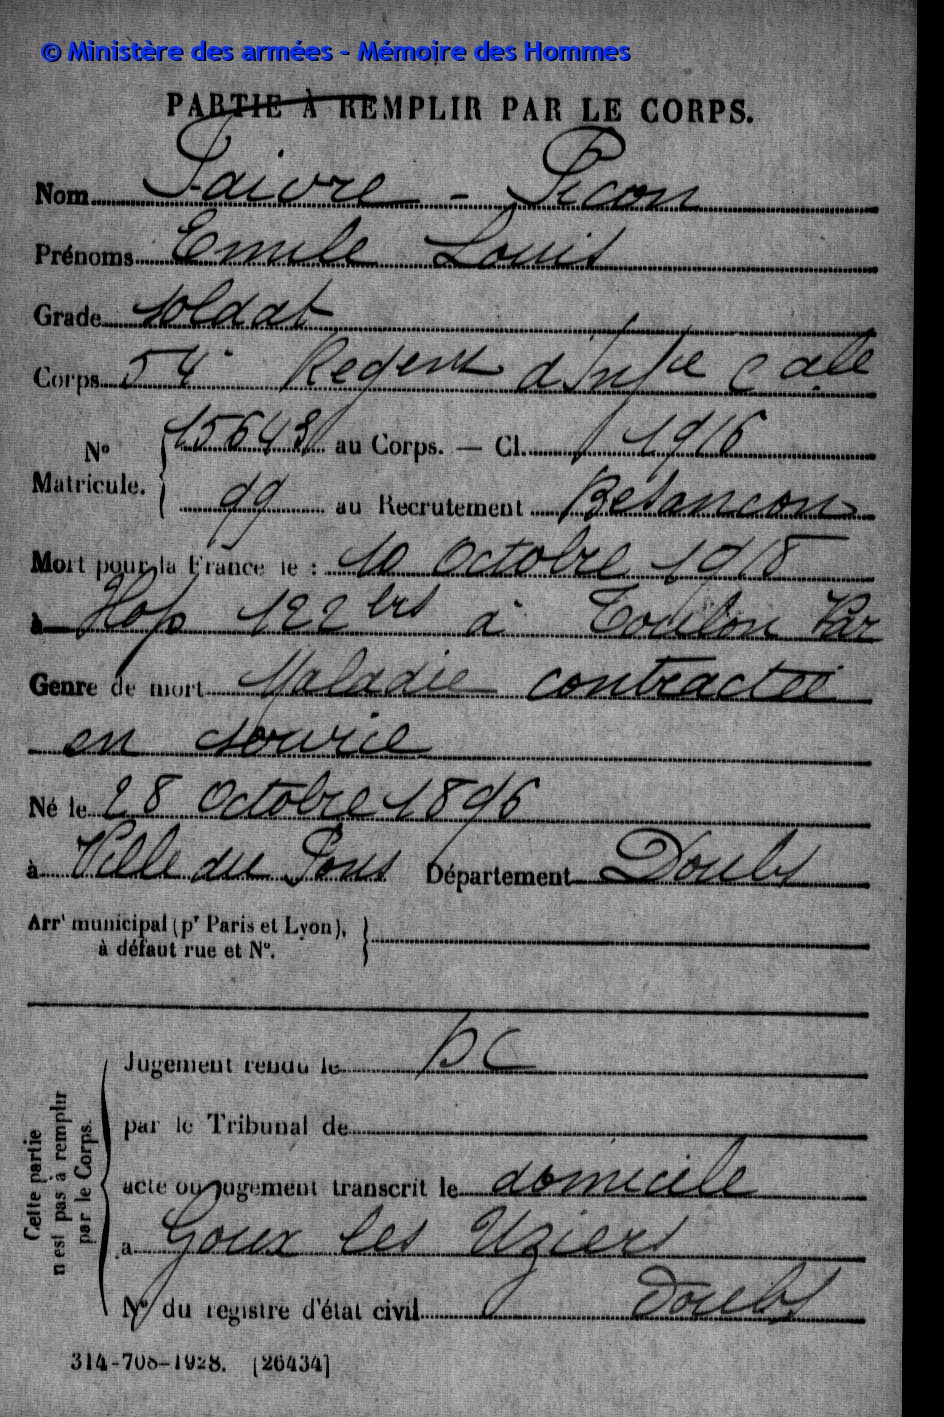 © Ministère des armées - Mémoire des Hommes
PARTIE À REMPLIR PAR LE CORPS.
Nom Faivre - Picon
Prénoms Emile Louis
Grade soldat
Corps 54e Regent d'Infie Cale
No Matricule. 15643 au Corps. — Cl. 1916
99 au Recrutement Besancon
Mort pour la France le : 10 Octobre 1918
à Hop 122 bis à Toulon Var
Genre de mort Maladie contractée
en service
Né le 28 Octobre 1896
à Ville du Pont Département Doubs
Arrt municipal (pr Paris et Lyon),
à défaut rue et No.
Cette partie n'est pas à remplir par le Corps.
Jugement rendu le DC
par le Tribunal de
acte ou jugement transcrit le domicile
à Goux les Uziers
No du registre d'état civil Doubs
314-708-1928. [26434]